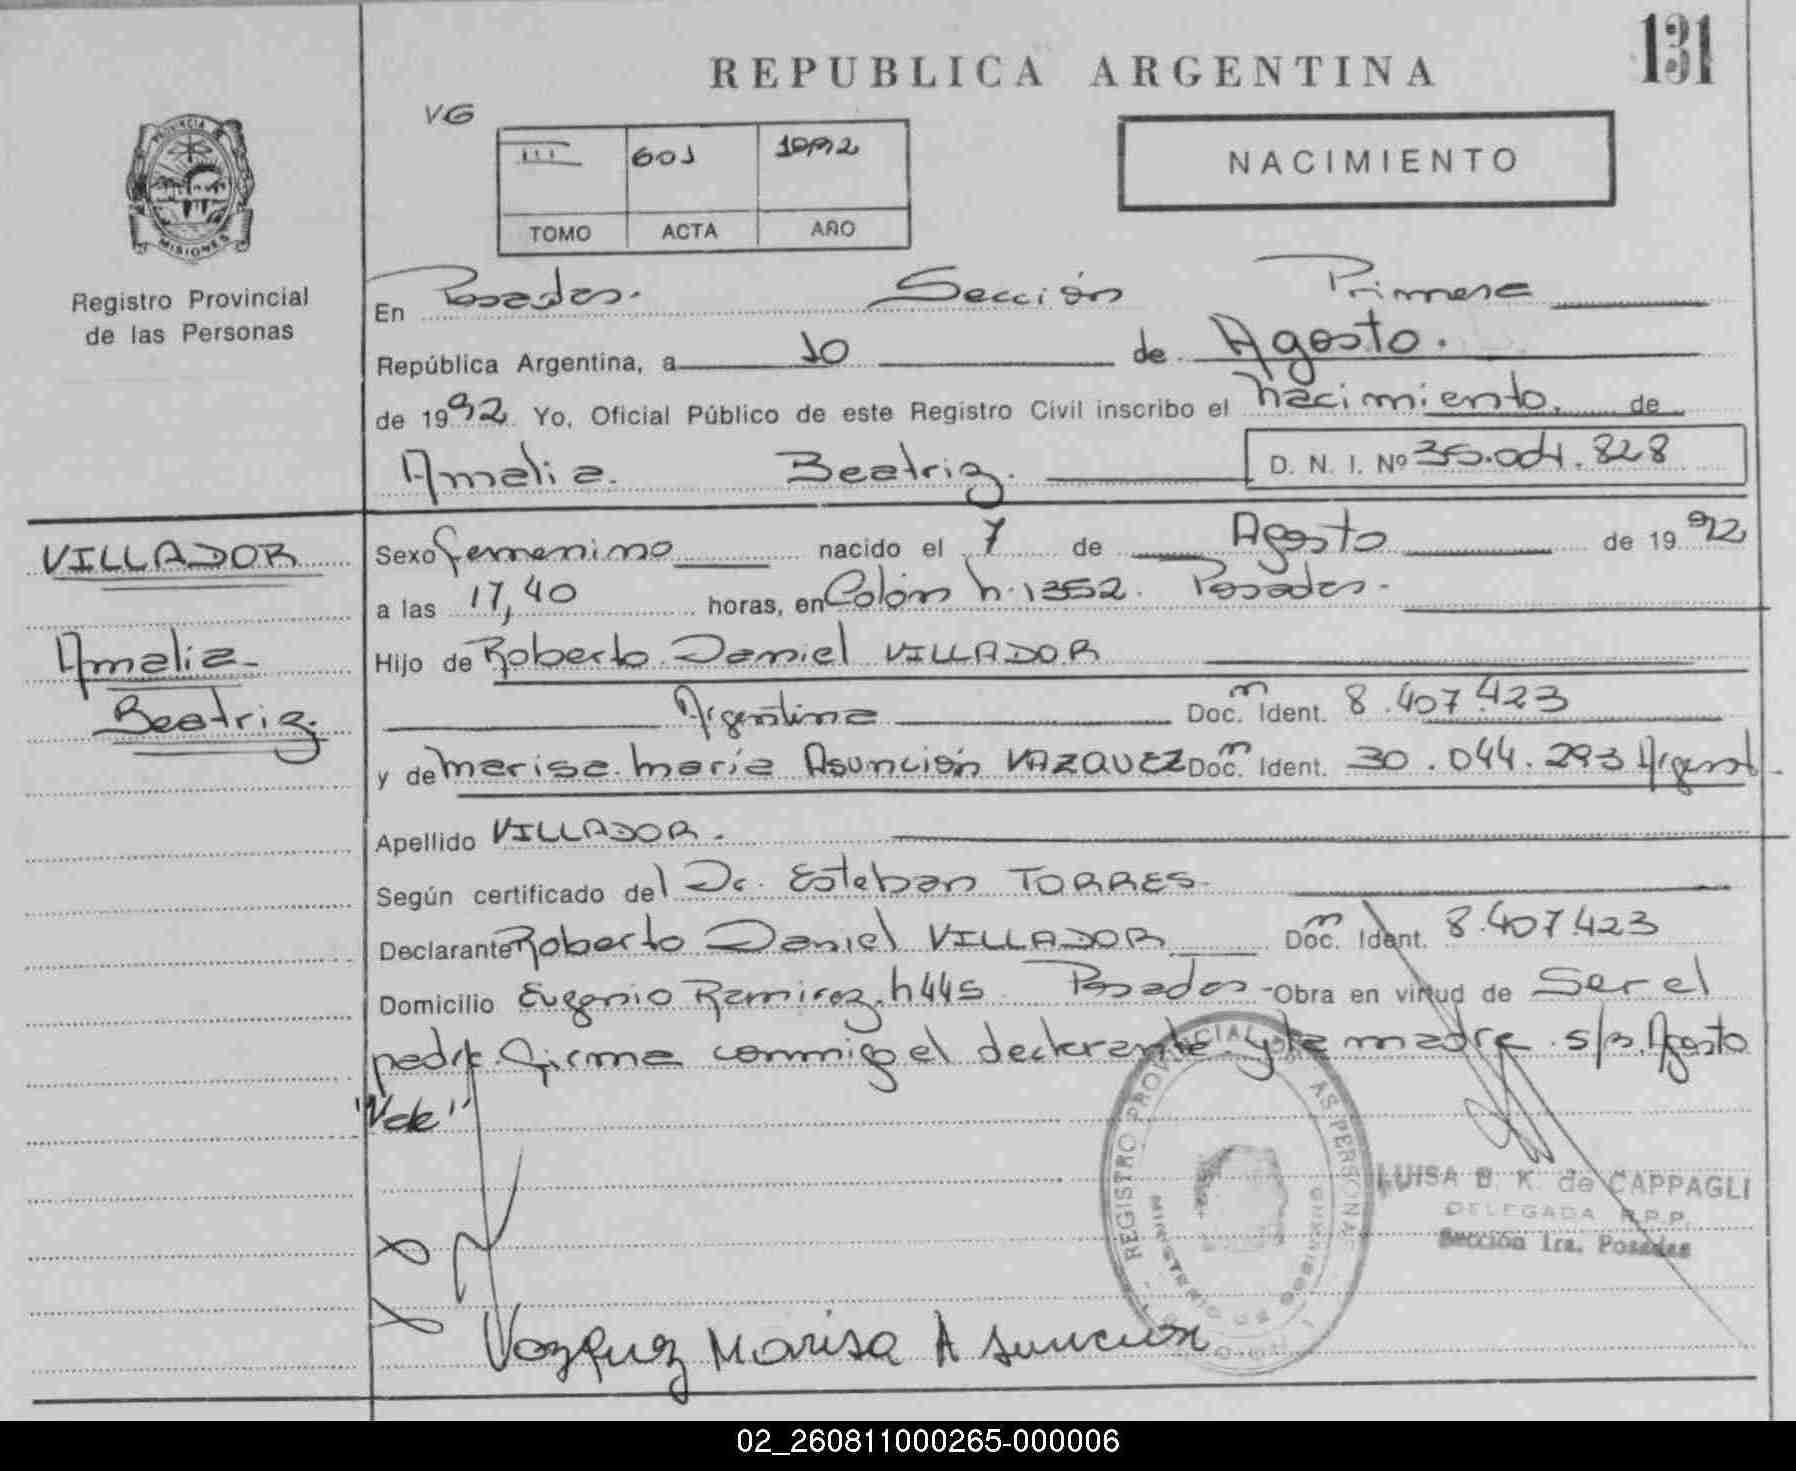 131
REPUBLICA ARGENTINA
VG
III 601 1992
TOMO ACTA AÑO
NACIMIENTO
PROVINCIA DE
MISIONES
Registro Provincial
de las Personas
En Posadas. Sección Primera
República Argentina, a 10 de Agosto.
de 1992 Yo, Oficial Público de este Registro Civil inscribo el nacimiento. de
Amalia. Beatriz. D. N. I. Nº 35.004.828
VILLADOR
Amalia
Beatriz.
Sexo femenino nacido el 7 de Agosto de 1992
a las 17,40 horas, en Colón n. 1352. Posadas.-
Hijo de Roberto Daniel VILLADOR
Argentina Doc. m Ident. 8.407.423
y de Marisa María Asunción VAZQUEZ Doc. m Ident. 30.044.293 Argent.
Apellido VILLADOR.
Según certificado del Dr. Esteban TORRES-
Declarante Roberto Daniel VILLADOR Doc. m Ident. 8.407423
Domicilio Eugenio Ramirez. n445 Posadas- Obra en virtud de Ser el
padre. firma conmigo el declarante y la madre s/r. Agosto
"Vale"
REGISTRO PROVINCIAL DE LAS PERSONAS
MINISTERIO DE GOBIERNO
LUISA B. K. de CAPPAGLI
DELEGADA R.P.P.
Sección 1ra. Posadas
Vazquez Marisa Asuncion
02_260811000265-000006